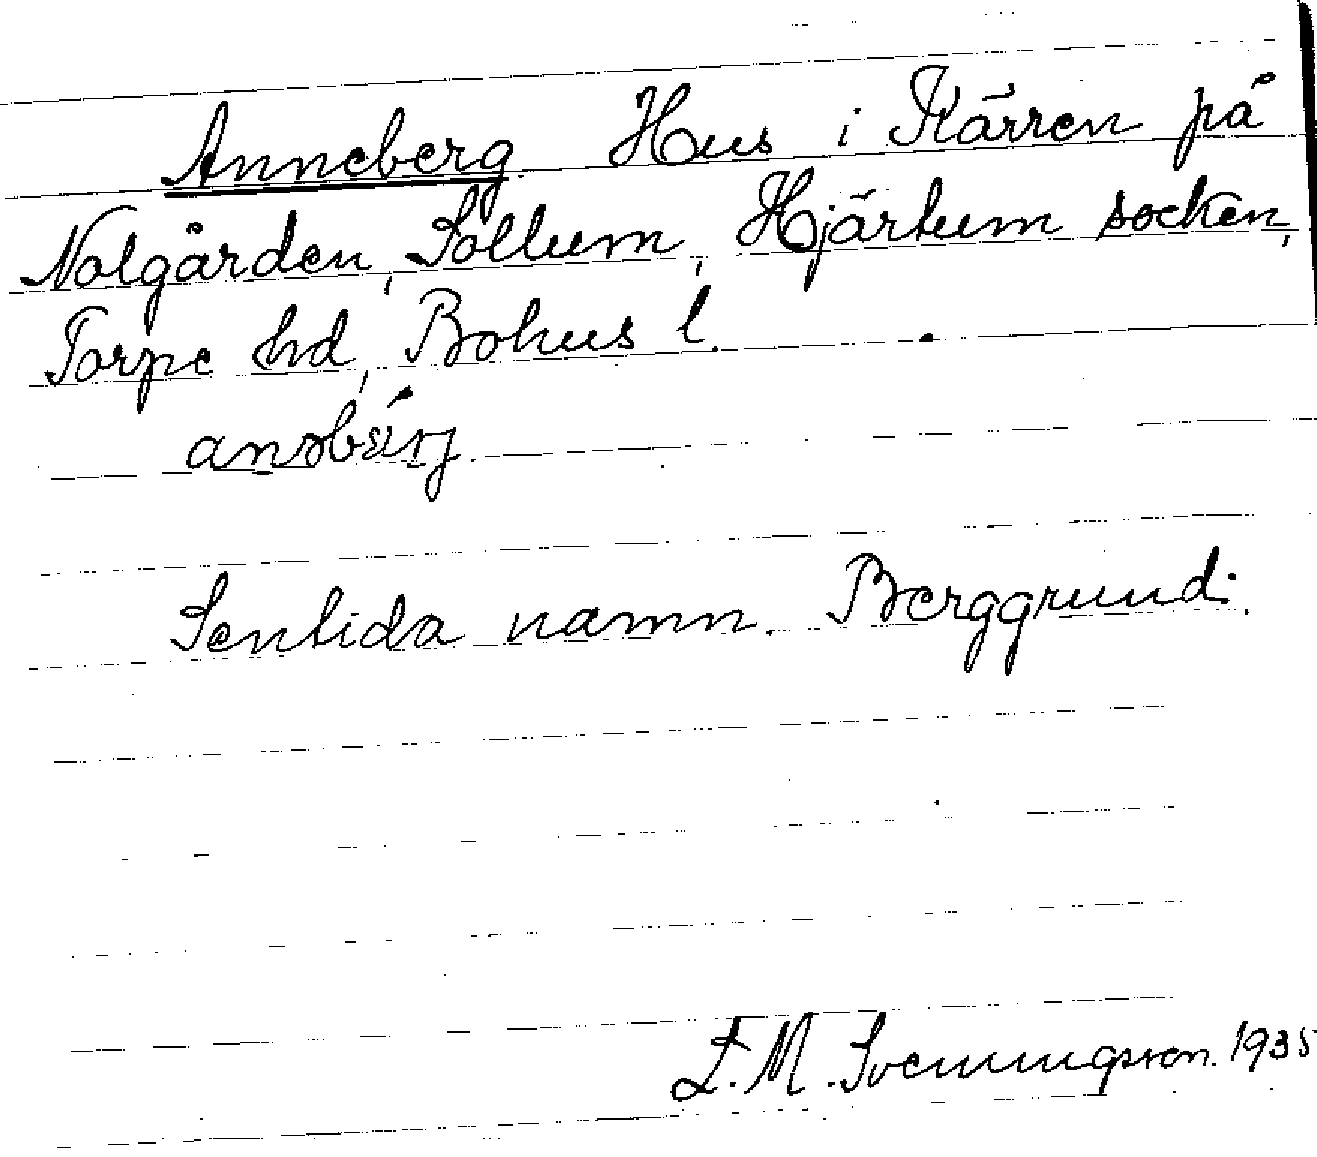 Anneberg Hus i Kärren på
Nolgården, Sollum, Hjärtum socken,
Torpe hd, Bohus l.
Sentida namn. Berggrund.
F. M. Svenningsson. 1935